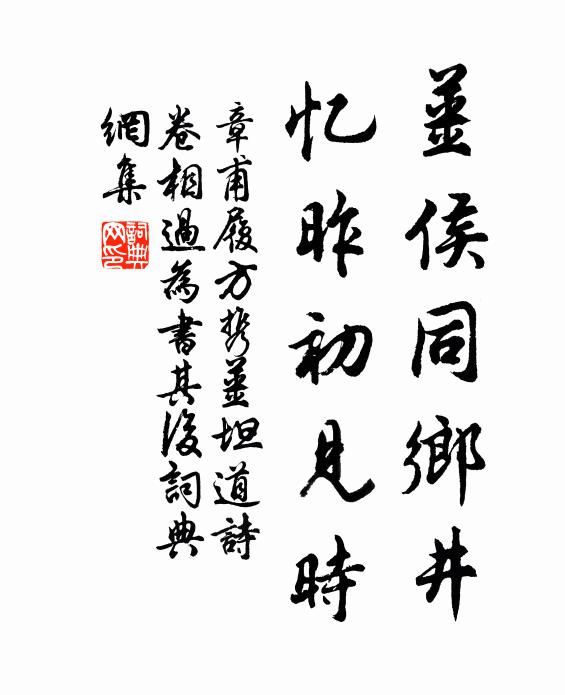 薑侯同鄉井
忆昨初見時
章甫履方携薑坦道詩
卷相過為書其後詞典
網集
詞典
网印